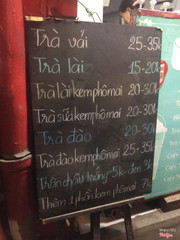 Trà vải 25-35k
Trà lài 15-20k
Trà lài kem phô mai 20-30k
Trà sữa kem phô mai 20-30k
Trà đào 20-30k
Trà đào kem phô mai 25-35k
Trân châu trắng 5k - đen 3k
Thêm 1 phần kem phô mai 7k